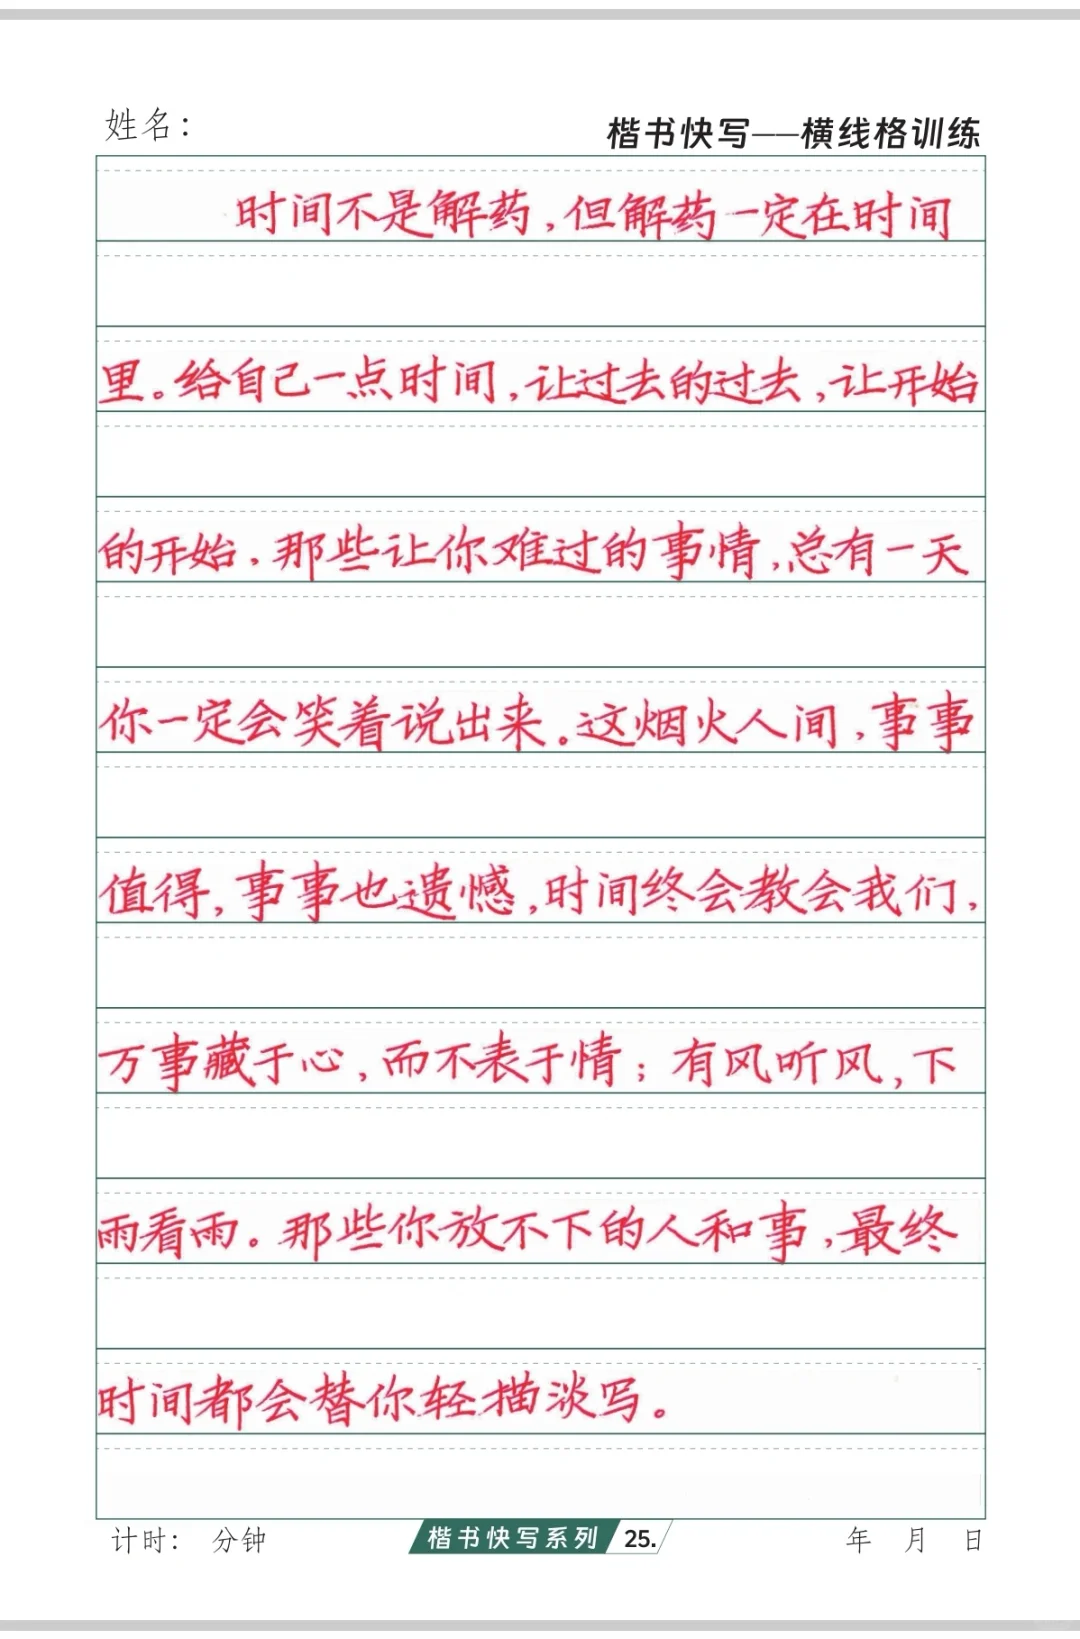 姓名：
楷书快写——横线格训练
时间不是解药，但解药一定在时间
里。给自己一点时间，让过去的过去，让开始
的开始．那些让你难过的事情，总有一天
你一定会笑着说出来。这烟火人间，事事
值得，事事也遗憾，时间终会教会我们，
万事藏于心，而不表于情；有风听风，下
雨看雨。那些你放不下的人和事，最终
时间都会替你轻描淡写。
计时： 分钟
楷书快写系列 25.
年 月 日